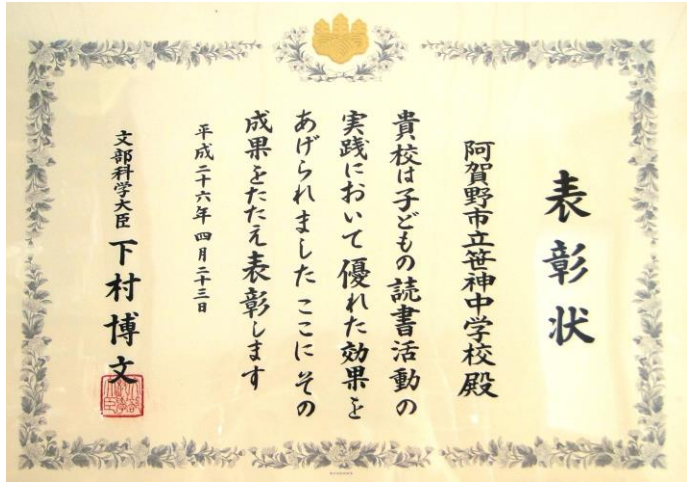 表彰状
阿賀野市立笹神中学校殿
貴校は子どもの読書活動の
実践において優れた効果を
あげられました ここに その
成果をたたえ表彰します
平成二十六年 四月 二十三日
文部科学大臣 下村博文